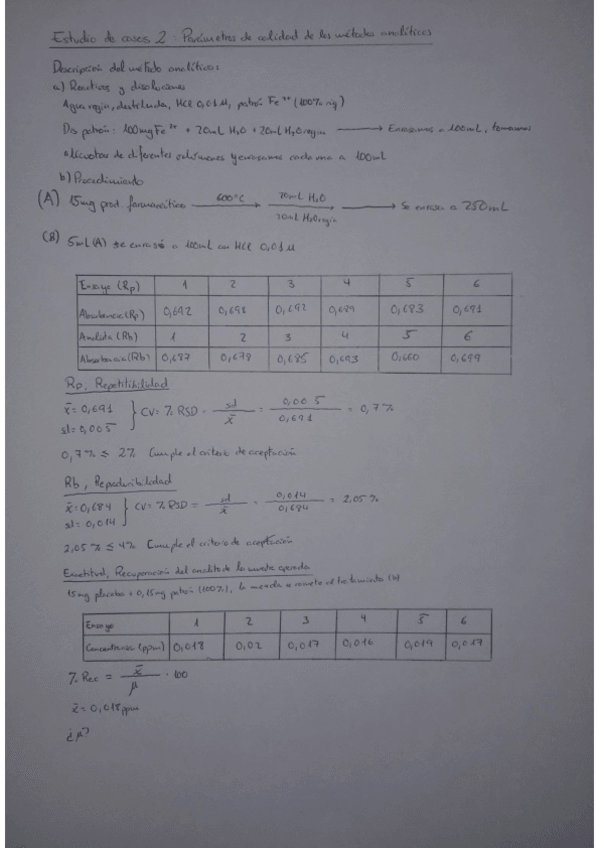 Estudio de casos 2: Parámetros de calidad de los métodos analíticos
Descripción del método analítico:
a) Reactivos y disoluciones
Agua regia, destilada, HCl 0,01M, patrón Fe (100% rig)
Dis patrón: 100mg Fe + 20mL H2O + 20mL H2O regia → Enrasamos a 100mL, tomamos
alícuotas de diferentes volúmenes y enrasamos cada una a 100ml
b) Procedimiento
(A) 15mg prod. farmacéutico 600°C → 20mL H2O → Se enrasa a 250mL
20mL H2O regia
(B) 5mL (A) se enrasó a 100ml con HCl 0,01M
Ensayo (Rp) 1 2 3 4 5 6
Absorbancia (Rp) 0,692 0,698 0,692 0,689 0,683 0,691
Analista (Rb) 1 2 3 4 5 6
Absorbancia (Rb) 0,687 0,678 0,685 0,693 0,660 0,699
Rp, Repetitibilidad
x̄ = 0,691
sd = 0,005 } CV = % RSD = sd/x̄ = 0,005/0,691 = 0,7%
0,7% ≤ 2% Cumple el criterio de aceptación
Rb, Reproducibilidad
x̄ = 0,684
sd = 0,014 } CV = % RSD = sd/x̄ = 0,014/0,684 = 2,05%
2,05% ≤ 4% Cumple el criterio de aceptación
Exactitud, Recuperación del analito de la muestra
15mg placebo + 0,15mg patrón (100%), la mezcla se somete al tratamiento (b)
Ensayo 1 2 3 4 5 6
Concentración (ppm) 0,018 0,02 0,017 0,016 0,019 0,017
% Rec = x̄/μ · 100
x̄ = 0,018 ppm
¿μ?